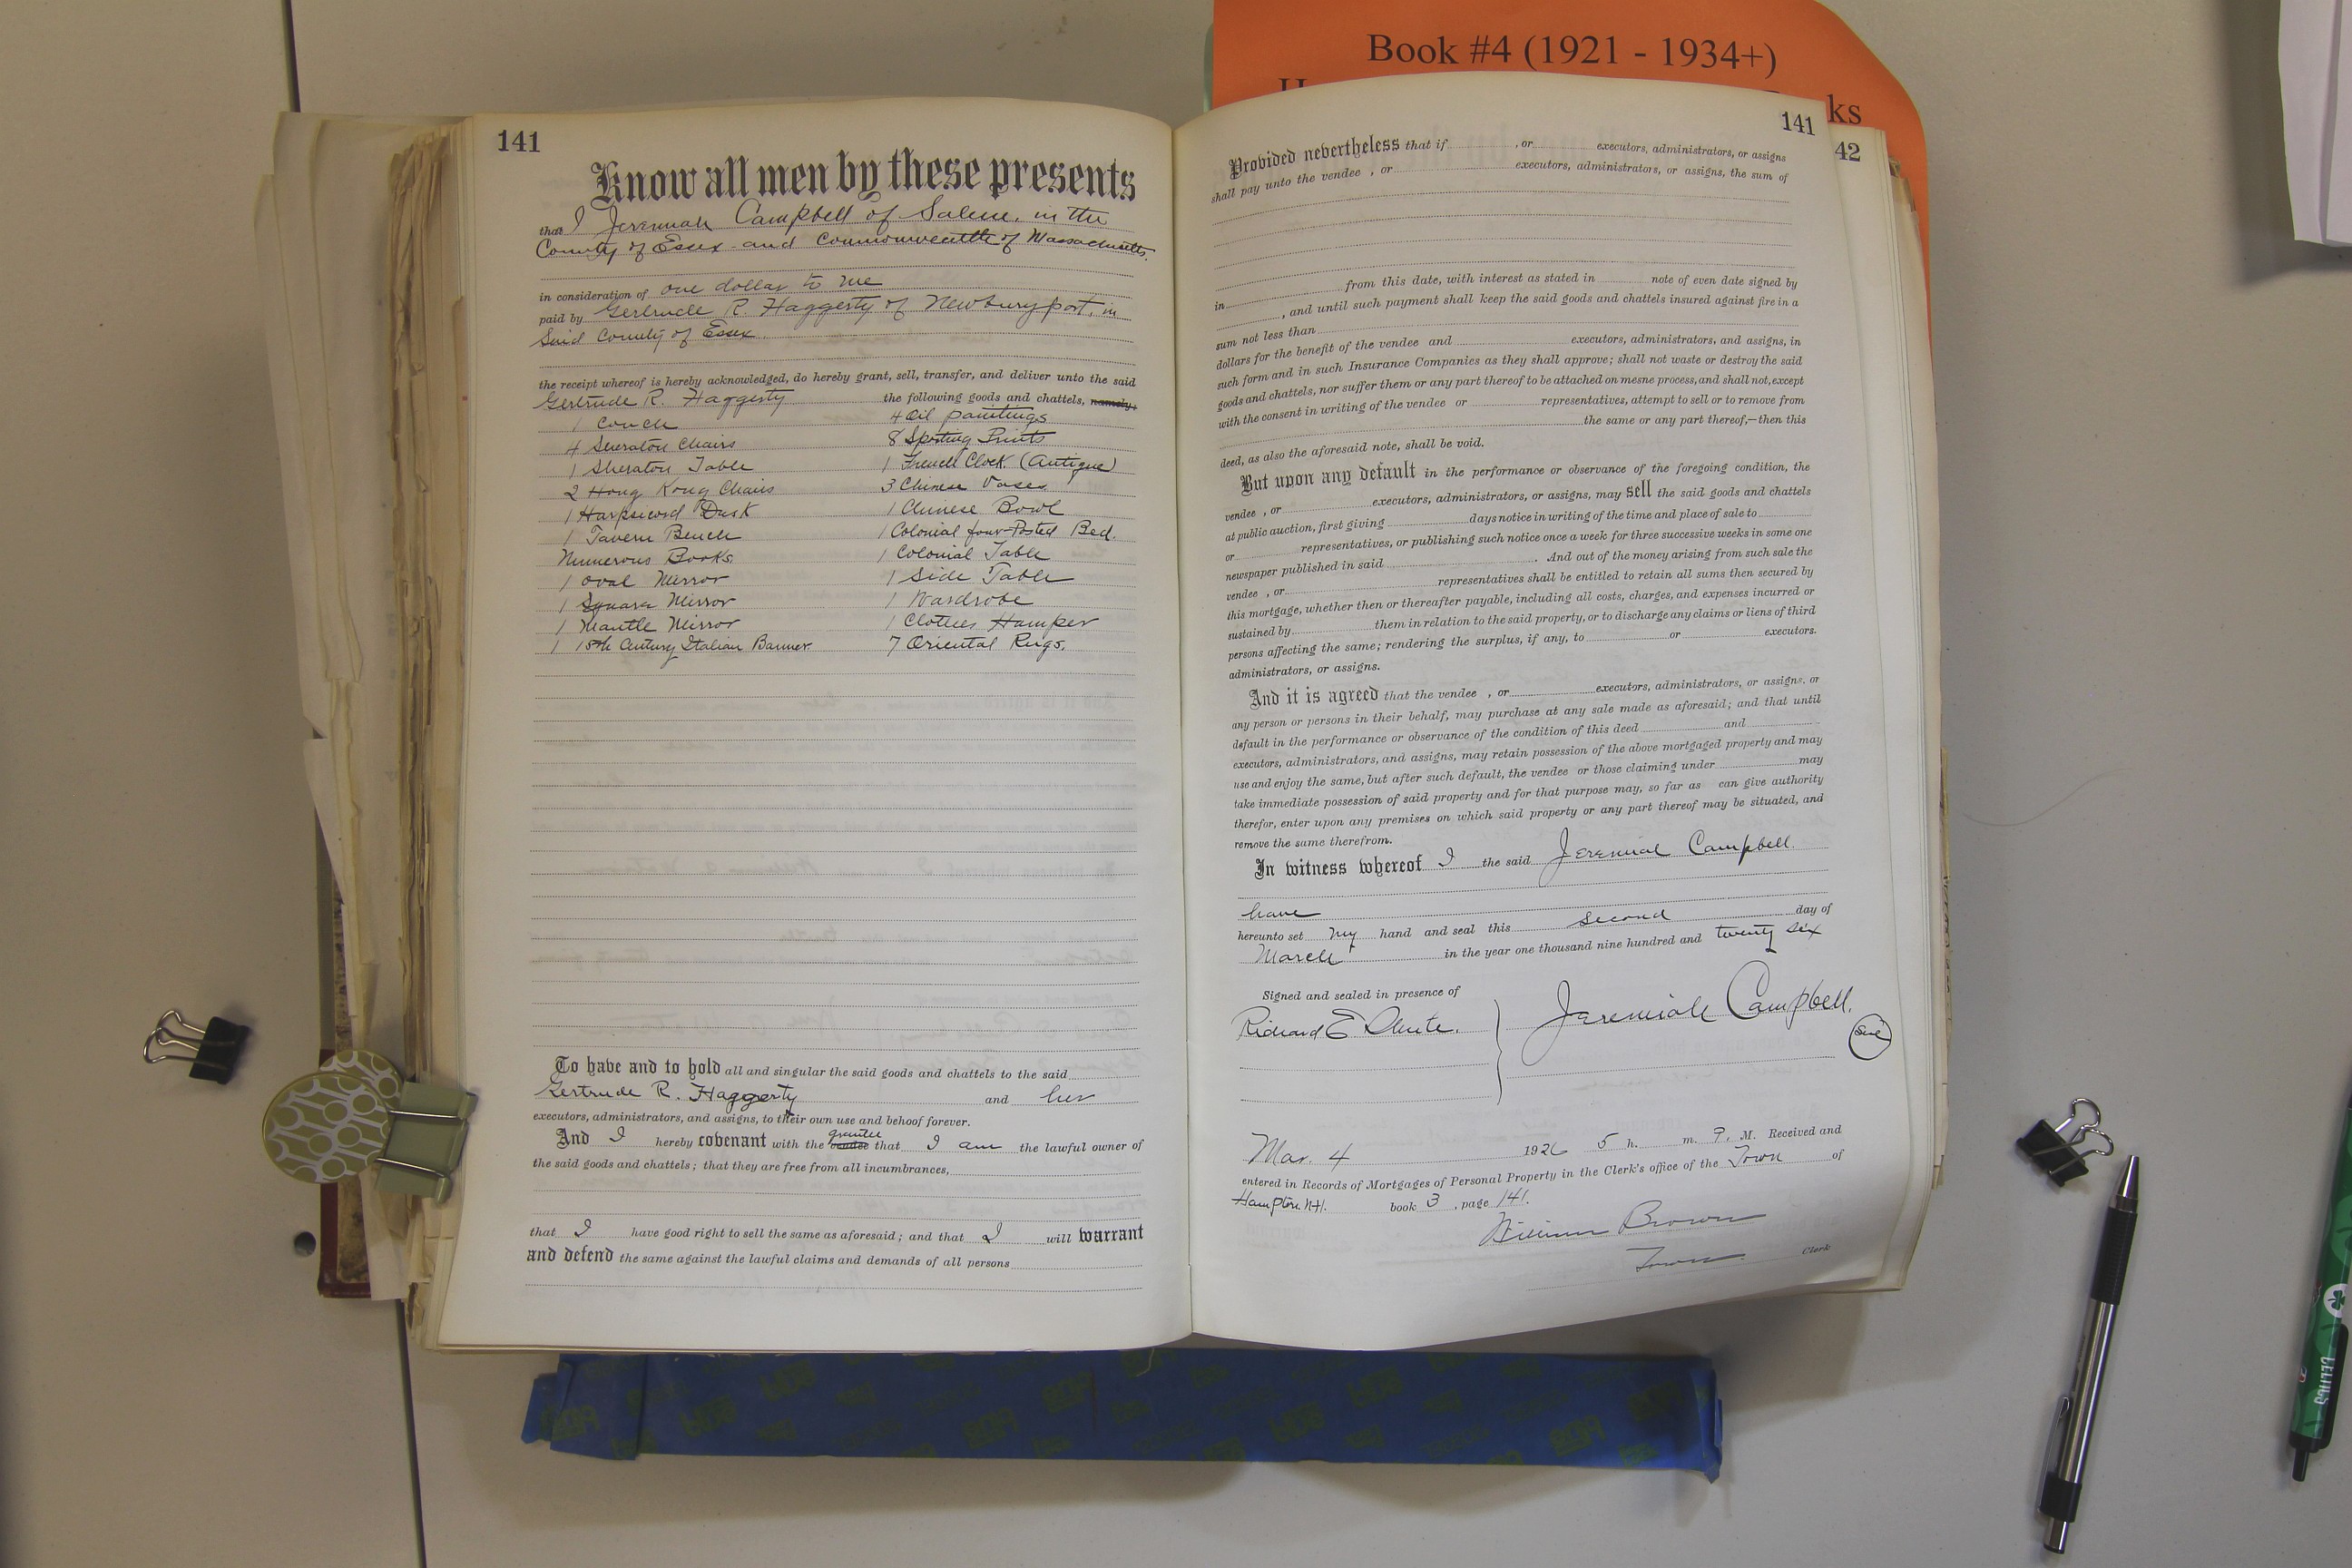 Book #4 (1921 - 1934+)
ks
42
141
Know all men by these presents
that I Jeremiah Campbell of Salem, in the
County of Essex and Commonwealth of Massachusetts.
in consideration of one dollar to me
paid by Gertrude R. Haggerty of Newburyport, in
Said County of Essex.
the receipt whereof is hereby acknowledged, do hereby grant, sell, transfer, and deliver unto the said
Gertrude R. Haggerty the following goods and chattels, namely:
1 Couch 4 Oil paintings
4 Sheraton Chairs 8 Sporting Prints
1 Sheraton Table 1 French Clock (Antique)
2 Hong Kong Chairs 3 Chinese Vases
1 Harpsicord Desk 1 Chinese Bowl
1 Tavern Bench 1 Colonial four-Posted Bed.
Numerous Books. 1 Colonial Table
1 oval Mirror 1 Side Table
1 Square Mirror 1 Wardrobe
1 Mantle Mirror 1 Clothes Hamper
1 15th Century Italian Banner. 7 Oriental Rugs.
To have and to hold all and singular the said goods and chattels to the said
Gertrude R. Haggerty and her
executors, administrators, and assigns, to their own use and behoof forever.
And I hereby covenant with the grantee that I am the lawful owner of
the said goods and chattels; that they are free from all incumbrances,
that I have good right to sell the same as aforesaid; and that I will warrant
and defend the same against the lawful claims and demands of all persons
141
Provided nevertheless that if , or executors, administrators, or assigns
shall pay unto the vendee , or executors, administrators, or assigns, the sum of
in from this date, with interest as stated in note of even date signed by
, and until such payment shall keep the said goods and chattels insured against fire in a
sum not less than
dollars for the benefit of the vendee and executors, administrators, and assigns, in
such form and in such Insurance Companies as they shall approve; shall not waste or destroy the said
goods and chattels, nor suffer them or any part thereof to be attached on mesne process, and shall not, except
with the consent in writing of the vendee or representatives, attempt to sell or to remove from
the same or any part thereof,—then this
deed, as also the aforesaid note, shall be void.
But upon any default in the performance or observance of the foregoing condition, the
vendee , or executors, administrators, or assigns, may sell the said goods and chattels
at public auction, first giving days notice in writing of the time and place of sale to
or representatives, or publishing such notice once a week for three successive weeks in some one
newspaper published in said . And out of the money arising from such sale the
vendee , or representatives shall be entitled to retain all sums then secured by
this mortgage, whether then or thereafter payable, including all costs, charges, and expenses incurred or
sustained by them in relation to the said property, or to discharge any claims or liens of third
persons affecting the same; rendering the surplus, if any, to or executors.
administrators, or assigns.
And it is agreed that the vendee , or executors, administrators, or assigns, or
any person or persons in their behalf, may purchase at any sale made as aforesaid; and that until
default in the performance or observance of the condition of this deed and
executors, administrators, and assigns, may retain possession of the above mortgaged property and may
use and enjoy the same, but after such default, the vendee or those claiming under may
take immediate possession of said property and for that purpose may, so far as can give authority
therefor, enter upon any premises on which said property or any part thereof may be situated, and
remove the same therefrom.
In witness whereof I the said Jeremiah Campbell.
have
hereunto set my hand and seal this second day of
March in the year one thousand nine hundred and twenty six
Signed and sealed in presence of
Richard E Shute. Jeremiah Campbell.
Seal
Mar. 4 1926 5 h. m. P. M. Received and
entered in Records of Mortgages of Personal Property in the Clerk's office of the Town of
Hampton N.H. book 3 , page 141.
William Brown
Town Clerk
CELTICS